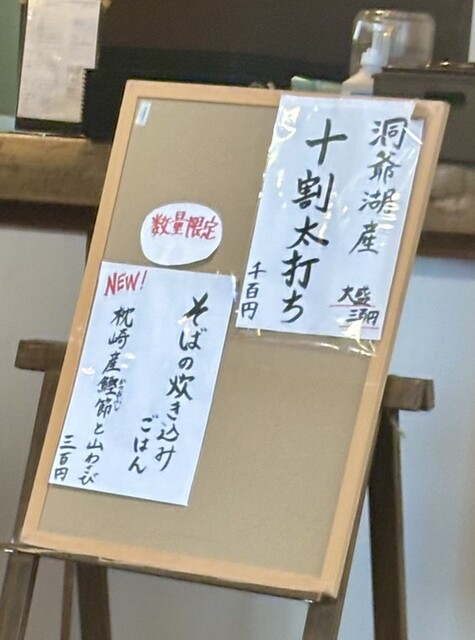 洞爺湖産
十割太打ち
千百円
大盛
三百円
数量限定
NEW!
そばの炊き込み
ごはん
枕崎産鰹節と山わさび
かつおぶし
三百円